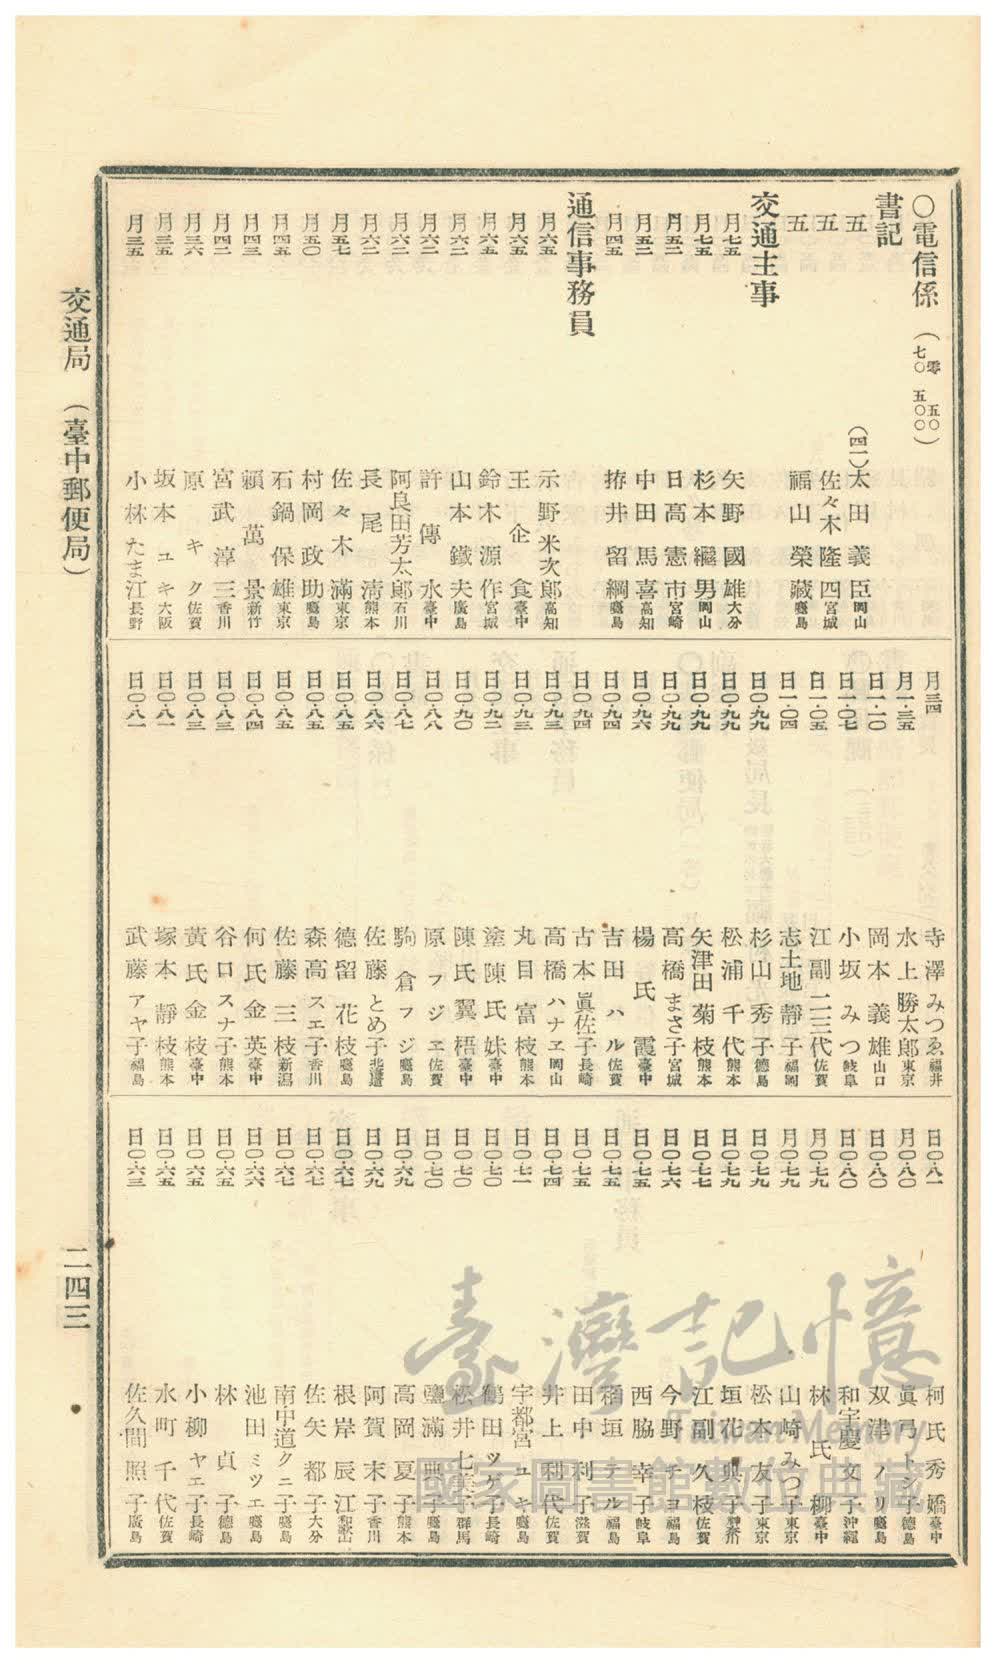 〇電信係（零 五〇 七〇 五〇〇）
書記
五 （四一）太田義臣 岡山
五 佐々木隆四 宮城
五 福山榮藏 鹿島
交通主事
月七五 矢野國雄 大分
月七五 杉本繼男 岡山
月五二 日高憲市 宮崎
月五二 中田馬喜 高知
月四五 拵井留綱 鹿島
通信事務員
月六五 示野米次郎 高知
月六五 王企食 臺中
月六五 鈴木源作 宮城
月六二 山本鐵夫 廣島
月六二 許傳水 臺中
月六二 阿良田芳太郎 石川
月六二 長尾淸 熊本
月五七 佐々木滿 東京
月五〇 村岡政助 鹿島
月四五 石鍋保雄 東京
月四三 賴萬景 新竹
月四二 宮武淳三 香川
月三六 原キク 佐賀
月三五 坂本ユキ 大阪
月三五 小林たま江 長野
月三四 寺澤みつゑ 福井
月一・三五 水上勝太郎 東京
日一・一〇 岡本義雄 山口
日一・〇七 小坂みつ 岐阜
日一・〇五 江副二三代 佐賀
日一・〇四 志土地靜子 福岡
日〇・九九 杉山秀子 德島
日〇・九九 松浦千代 熊本
日〇・九九 矢津田菊枝 熊本
日〇・九九 高橋まさ子 宮城
日〇・九六 楊氏霞 臺中
日〇・九四 吉田ハル 佐賀
日〇・九四 古本眞佐子 長崎
日〇・九三 高橋ハナヱ 岡山
日〇・九三 丸目富枝 熊本
日〇・九二 塗陳氏妹 臺中
日〇・九〇 陳氏翼梧 臺中
日〇・八八 原フジヱ 佐賀
日〇・八七 駒倉フジ 鹿島
日〇・八六 佐藤とめ子 北海道
日〇・八五 德留花枝 鹿島
日〇・八五 森高スエ子 香川
日〇・八五 佐藤三枝 新潟
日〇・八四 何氏金英 臺中
日〇・八三 谷口スナ子 熊本
日〇・八三 黃氏金枝 臺中
日〇・八一 塚本靜枝 熊本
日〇・八一 武藤アヤ子 福島
日〇・八一 柯氏秀嬌 臺中
月〇・八〇 眞弓トシ子 德島
日〇・八〇 双津ノリ 鹿島
日〇・八〇 和宇慶文子 沖繩
月〇・七九 林氏柳 臺中
月〇・七九 山崎みつ子 東京
日〇・七九 松本友子 東京
日〇・七九 垣花典子
日〇・七七 江副久枝 佐賀
日〇・七六 今野チヨ 福島
日〇・七五 西脇幸子 岐阜
日〇・七五 稻垣テル 福島
日〇・七五 田中利子 滋賀
日〇・七四 井上利代 佐賀
日〇・七一 宇都宮ユキ 鹿島
日〇・七〇 鶴田ツゲ子 長崎
日〇・七〇 松井七重 群馬
日〇・七〇 鹽滿典子 鹿島
月〇・六九 高岡夏子 熊本
日〇・六九 阿賀末子 香川
日〇・六七 根岸辰江 和歌山
日〇・六七 佐矢都子 大分
日〇・六七 南中道クニ子 鹿島
日〇・六六 池田ミツエ 鹿島
日〇・六五 林貞子 德島
日〇・六五 小柳ヤエ子 長崎
日〇・六五 水町千代 佐賀
日〇・六三 佐久間照子 廣島
交通局 （臺中郵便局）
二四三
臺灣記憶
Taiwan Memory
國家圖書館數位典藏